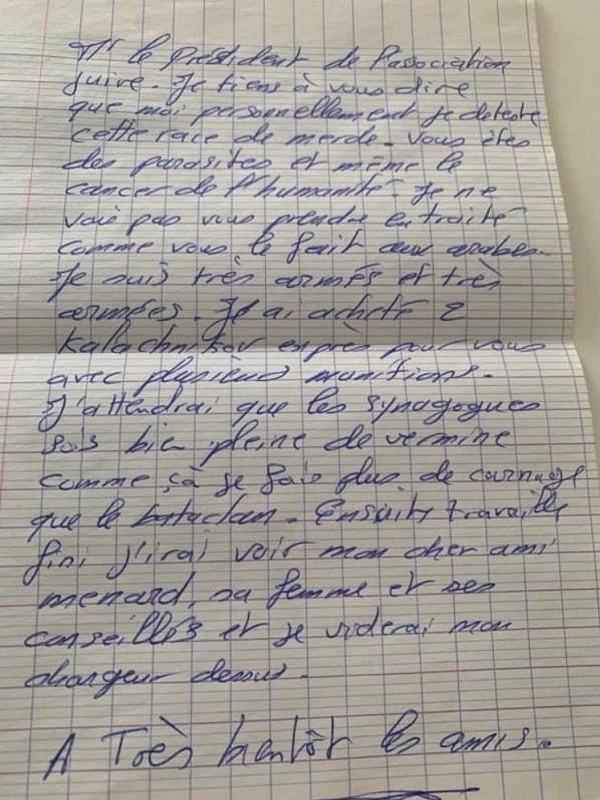 Mr le président de l'association
juive. Je tiens à vous dire
que moi personnellement je deteste
cette race de merde. Vous êtes
des parasites et même le
cancer de l'humanité. Je ne
vais pas vous prendre en traité
comme vous le fait aux arabes.
Je suis très armés et très
armées. Je ai acheté 2
Kalachnikov exprès pour vous
avec plusieurs munitions.
J'attendrai que les synagogues
sois bien pleine de vermine
comme sà je fais plus de carnage
que le bataclan. Ensuite travaille
fini j'irai voir mon cher ami
menard, sa femme et ses
conseillés et je viderai mon
chargeur dessus.
A Très bientôt les amis.